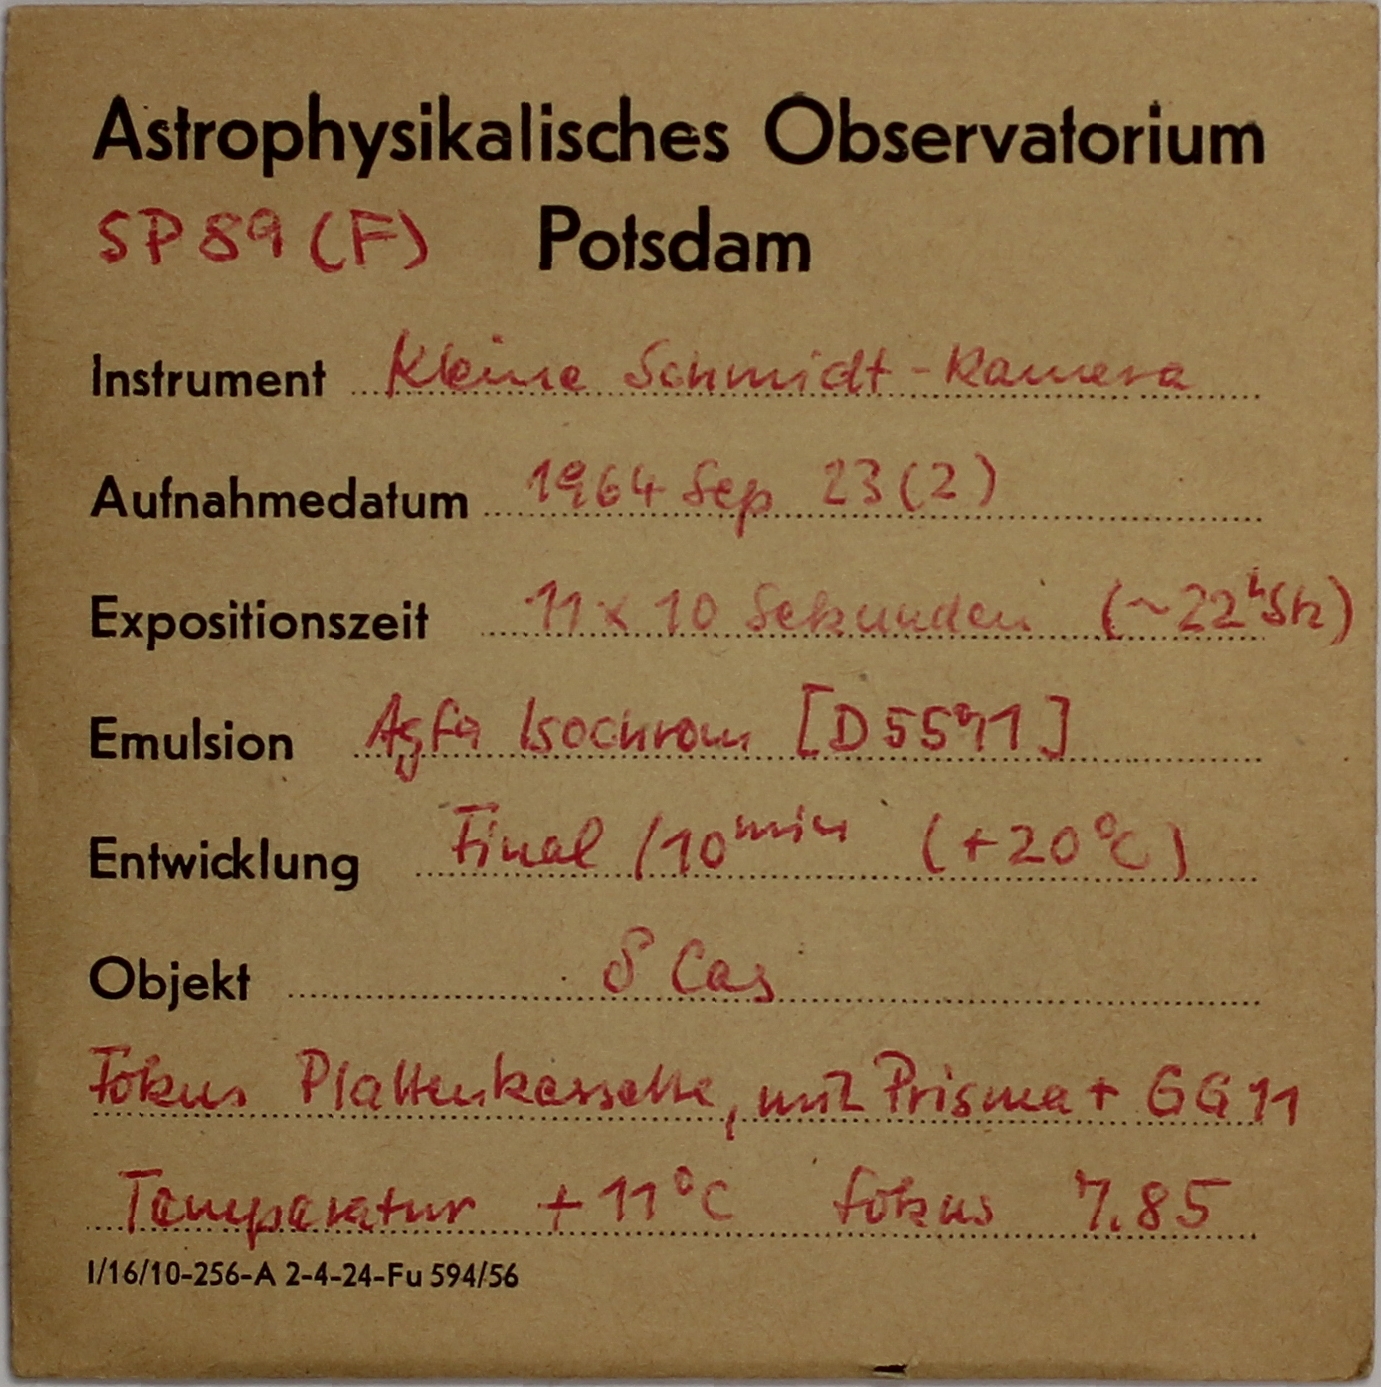 Astrophysikalisches Observatorium
SP 89 (F) Potsdam
Instrument Kleine Schmidt-Kamera
Aufnahmedatum 1964 Sep 23 (2)
Expositionszeit 11 x 10 Sekunden (~22h Stz)
Emulsion Agfa Isochrom [D 5571]
Entwicklung Final / 10 min (+20°C)
Objekt δ Cas
Fokus Plattenkassette, mit Prisma + GG 11
Temperatur +11°C Fokus 7.85
I/16/10-256-A 2-4-24-Fu 594/56